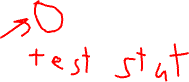 test stat